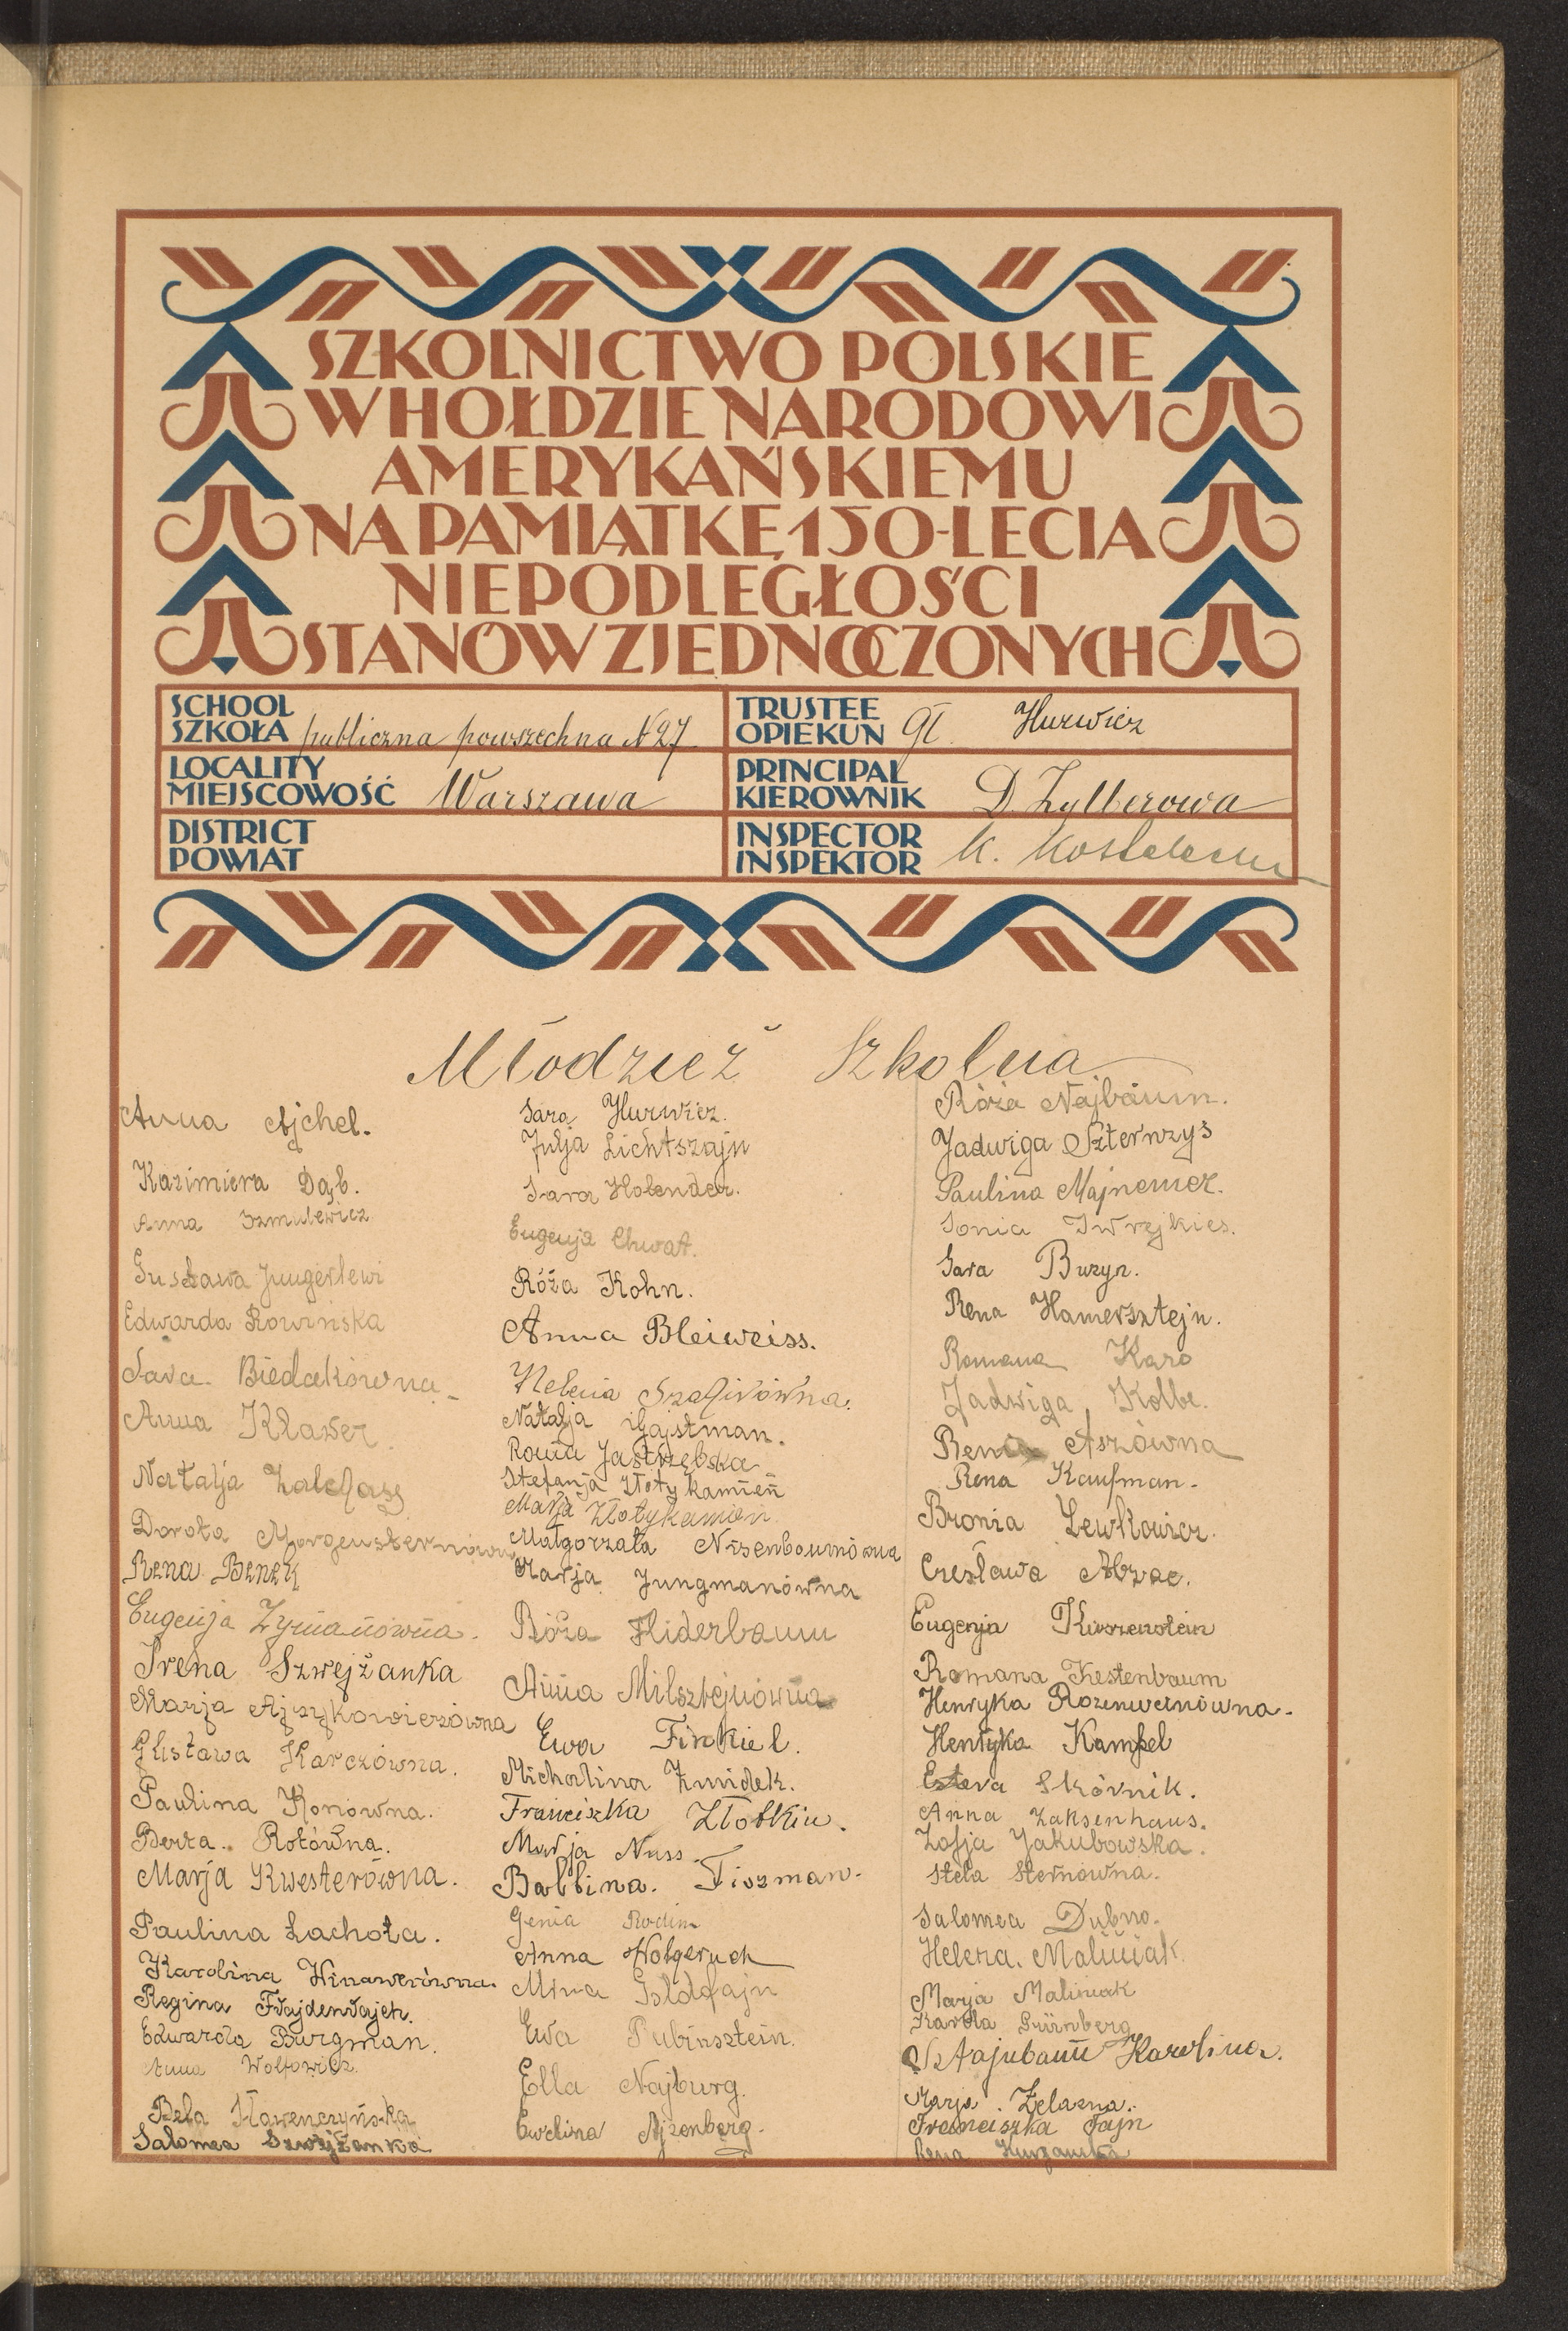 SZKOLNICTWO POLSKIE
W HOŁDZIE NARODOWI
AMERYKAŃSKIEMU
NA PAMIĄTKĘ 150-LECIA
NIEPODLEGŁOŚCI
STANÓW ZJEDNOCZONYCH
SCHOOL
SZKOŁA publiczna powszechna N 27
TRUSTEE
OPIEKUN Gl. Hurwicz
LOCALITY
MIEJSCOWOŚĆ Warszawa
PRINCIPAL
KIEROWNIK D Zylberowa
DISTRICT
POWIAT
INSPECTOR
INSPEKTOR K.
Młodzież Szkolna
Anna Ajchel.
Kazimiera Dąb.
Anna Szmulewicz
Gustawa Jungerlewi
Edwarda Rowińska
Sara Biedakówna
Anna Kławer.
Natalja Zalcfass
Dorota Morgensternówna
Rena Benek
Eugenja Zymanówna.
Irena Szwejżanka
Marja Ajzykowiczówna
Gustawa Karczówna.
Paulina Konówna.
Berta. Rotówna.
Marja Kwesterówna.
Paulina Lachota.
Karolina Winawerówna.
Regina Fwajdenwajch.
Edwarda Burgman.
Anna Wolfowicz.
Bela Hawenczyńska
Salomea Szwejżanka
Sara Hurwicz.
Julja Lichtszajn
Sara Holender.
Eugenja Chwat.
Róża Kohn.
Anna Bleiweiss.
Helena Szafirówna.
Natalja Gajstman.
Roma Jastrzębska
Stefanja Złotykamień
Marja Złotykamień
Małgorzata Nisenbaumówna
Marja Jungmanówna
Róża Fliderbaum
Anna Milsztejnówna
Ewa Finkiel.
Michalina Zmidek.
Franciszka Złotkin.
Marja Nuss.
Balbina. Fiszman.
Genia Rodin
Anna Wolgeruch
Mina Goldfajn
Ewa Rubinsztein.
Ella Najburg.
Ewelina Ajzenberg.
Róża Najbaum.
Jadwiga Szternzys
Paulina Majnemer.
Sonia Iwrejkies.
Sara Buzyn.
Rena Hamersztejn.
Romana Karo
Jadwiga Kolbe.
Rena Aszówna
Rena Kaufman.
Bronia Lewkowicz.
Czesława Abzac.
Eugenja Kirszenstein
Romana Kestenbaum
Henryka Rozenweinówna.
Henryka Kampel
Estera Skórnik.
Anna Zaksenhaus.
Zofja Jakubowska.
Stela Sternówna.
Salomea Dubno.
Helena. Maliniak.
Marja Maliniak
Karola Grünberg
Sztajnbaum Karolina.
Marja. Żelazna.
Franciszka Fajn
Rena